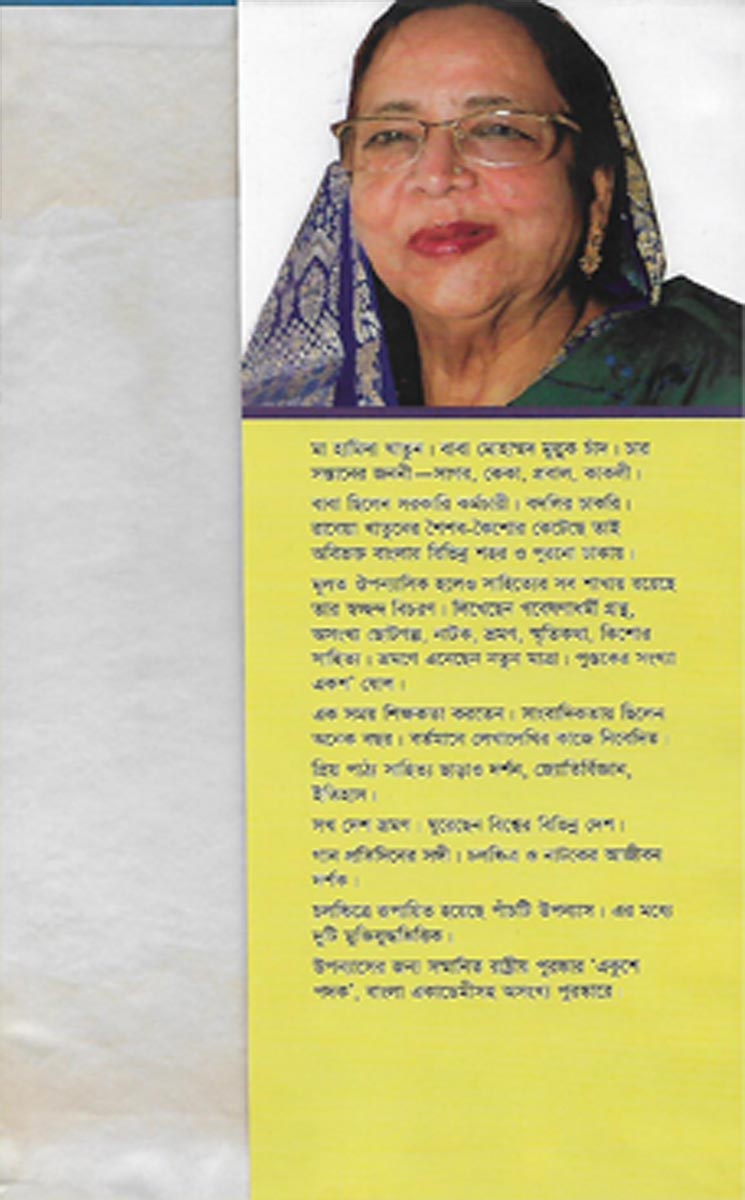 মা হামিদা খাতুন। বাবা মোহাম্মদ মুল্লুক চাঁদ। চার
সন্তানের জননী—সাগর, কেকা, প্রবাল, কাকলী।
বাবা ছিলেন সরকারি কর্মচারী। বদলির চাকরি।
রাবেয়া খাতুনের শৈশব-কৈশোর কেটেছে তাই
অবিভক্ত বাংলার বিভিন্ন শহর ও পুরনো ঢাকায়।
মূলত ঔপন্যাসিক হলেও সাহিত্যের সব শাখায় রয়েছে
তার স্বচ্ছন্দ বিচরণ। লিখেছেন গবেষণাধর্মী গ্রন্থ,
অসংখ্য ছোটগল্প, নাটক, ভ্রমণ, স্মৃতিকথা, কিশোর
সাহিত্য। ভ্রমণে এনেছেন নতুন মাত্রা। পুস্তকের সংখ্যা
একশ' ষোল।
এক সময় শিক্ষকতা করতেন। সাংবাদিকতায় ছিলেন
অনেক বছর। বর্তমানে লেখালেখির কাজে নিবেদিত।
প্রিয় পাঠ্য সাহিত্য ছাড়াও দর্শন, জ্যোতির্বিজ্ঞান,
ইতিহাস।
সখ দেশ ভ্রমণ। ঘুরেছেন বিশ্বের বিভিন্ন দেশ।
গান প্রতিদিনের সঙ্গী। চলচ্চিত্র ও নাটকের আজীবন
দর্শক।
চলচ্চিত্রে রূপায়িত হয়েছে পাঁচটি উপন্যাস। এর মধ্যে
দুটি মুক্তিযুদ্ধভিত্তিক।
উপন্যাসের জন্য সম্মানিত রাষ্ট্রীয় পুরস্কার 'একুশে
পদক', বাংলা একাডেমীসহ অসংখ্য পুরস্কারে